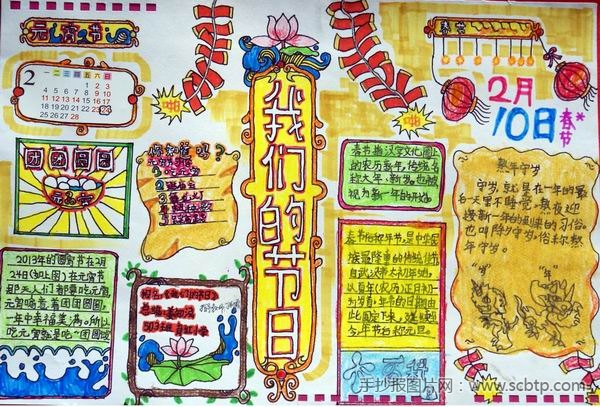 元宵节
2 一 二 三 四 五 六 日
1 2 3
4 5 6 7 8 9 10
11 12 13 14 15 16 17
18 19 20 21 22 23 24
25 26 27 28
团团圆圆
2013年的元宵节在2月
24日(如上图)在元宵节
那天人们都要吃元宵,
元宵喻意着团团圆圆,
一年中幸福美满。所以
吃元宵就是吃"团团圆
你知道吗?
1.吃元宵
报名:《我们的节日》
503班
我们的节日
春节
2月
10日
春节
春节指汉字文化圈上
的农历新年,传统名
称为大年、新岁。也被
视为新一年的开始
春节俗称年节,是中华民
族最隆重的传统佳节
自汉武帝太初年始,
以夏年(农历)正月初一
为岁首,年节的日期由
此固定下来,延续至
今。年节古称元旦。
熬年守岁
守岁,就是在一年的最
后一天里不睡觉,熬夜迎
接新一年的到来的习俗。
也叫除夕守岁,俗称熬
年守岁。
手抄报图片网:www.scbtp.com